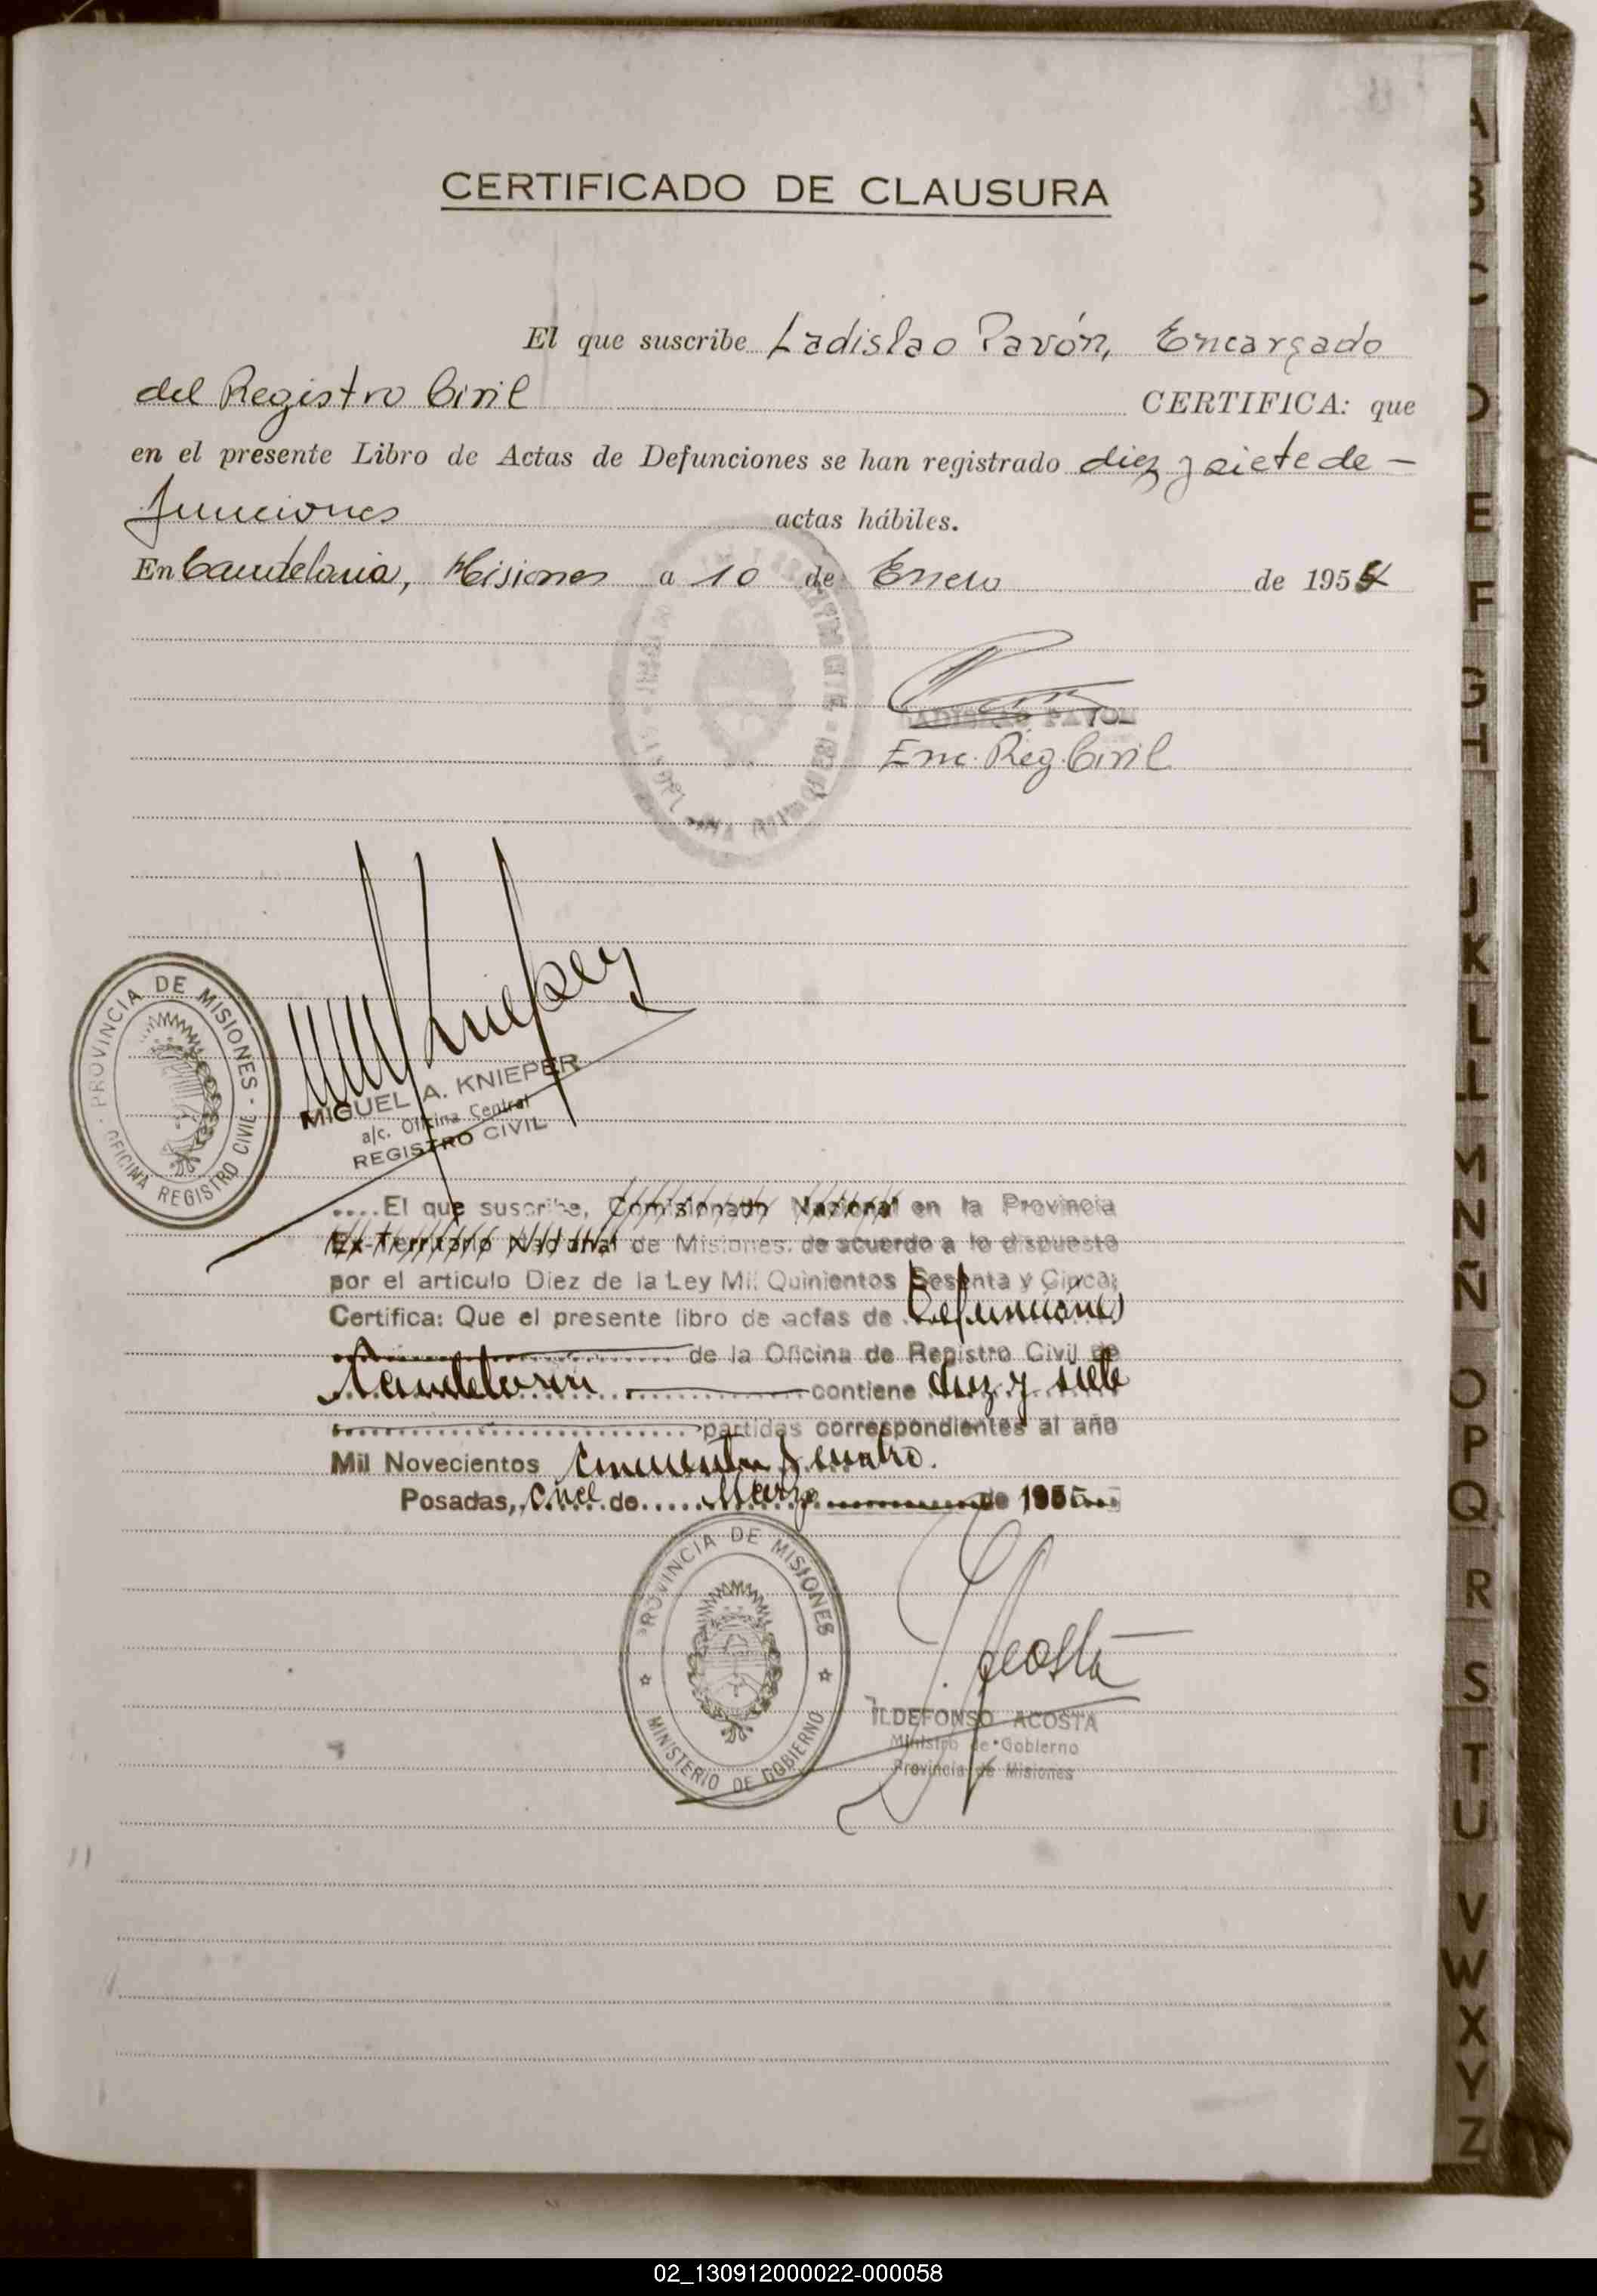 CERTIFICADO DE CLAUSURA
El que suscribe Ladislao Pavón, Encargado
del Registro Civil CERTIFICA: que
en el presente Libro de Actas de Defunciones se han registrado diez y siete de-
funciones actas hábiles.
En Candelaria, Misiones a 10 de Enero de 195
LADISLAO PAVON
Enc. Reg. Civil
PROVINCIA DE MISIONES - OFICINA REGISTRO CIVIL -
MAKnieper
MIGUEL A. KNIEPER
a/c. Oficina Central
REGISTRO CIVIL
....El que suscribe, Comisionado Nacional en la Provincia
Ex-Territorio Nacional de Misiones, de acuerdo a lo dispuesto
por el articulo Diez de la Ley Mil Quinientos Sesenta y Cinco;
Certifica: Que el presente libro de actas de Defunciones
de la Oficina de Registro Civil de
Candelaria contiene diez y siete
partidas correspondientes al año
Mil Novecientos cincuenta y cuatro.
Posadas, once de Marzo de 1955
PROVINCIA DE MISIONES
MINISTERIO DE GOBIERNO
Acosta
ILDEFONSO ACOSTA
Ministro de Gobierno
Provincia de Misiones
A
B
C
D
E
F
G
H
I
J
K
L
LL
M
N
Ñ
O
P
Q
R
S
T
U
V
W
X
Y
Z
02_130912000022-000058